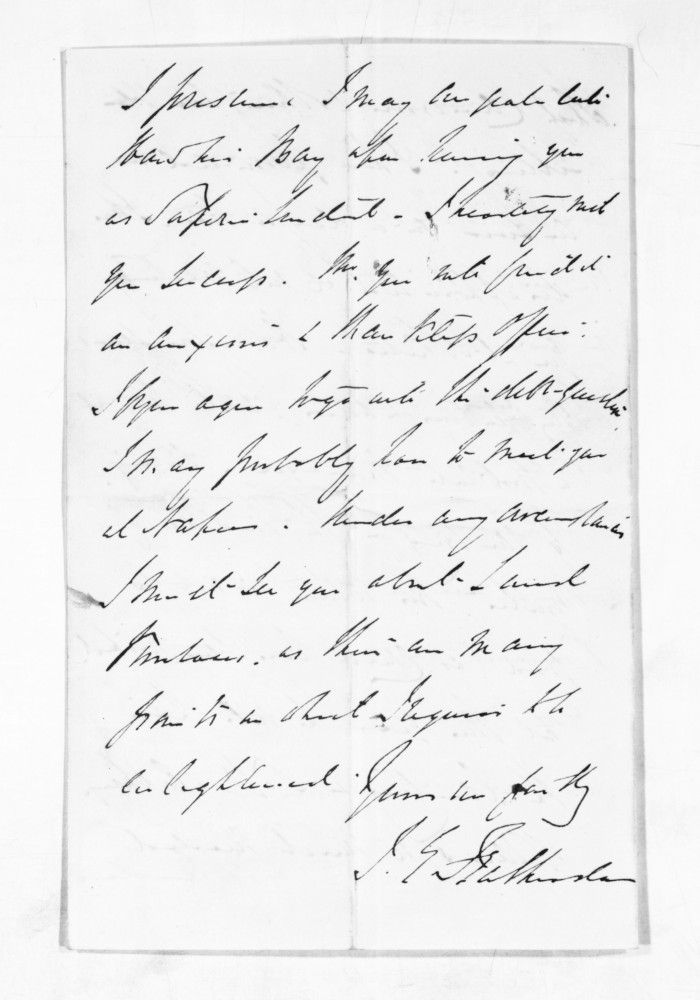 I presume I may congratulate
Hawkes Bay upon having you
as Superintendent - I heartily wish
you success. You will find it
an anxious & thankless office.
I hope again to go into the debt question
I may probably have to meet you
at Napier. Under any circumstances
I must see you about Land
Purchases. as there are many
points on which I require to be
enlightened. Yours very faithfully
I. E. Featherston